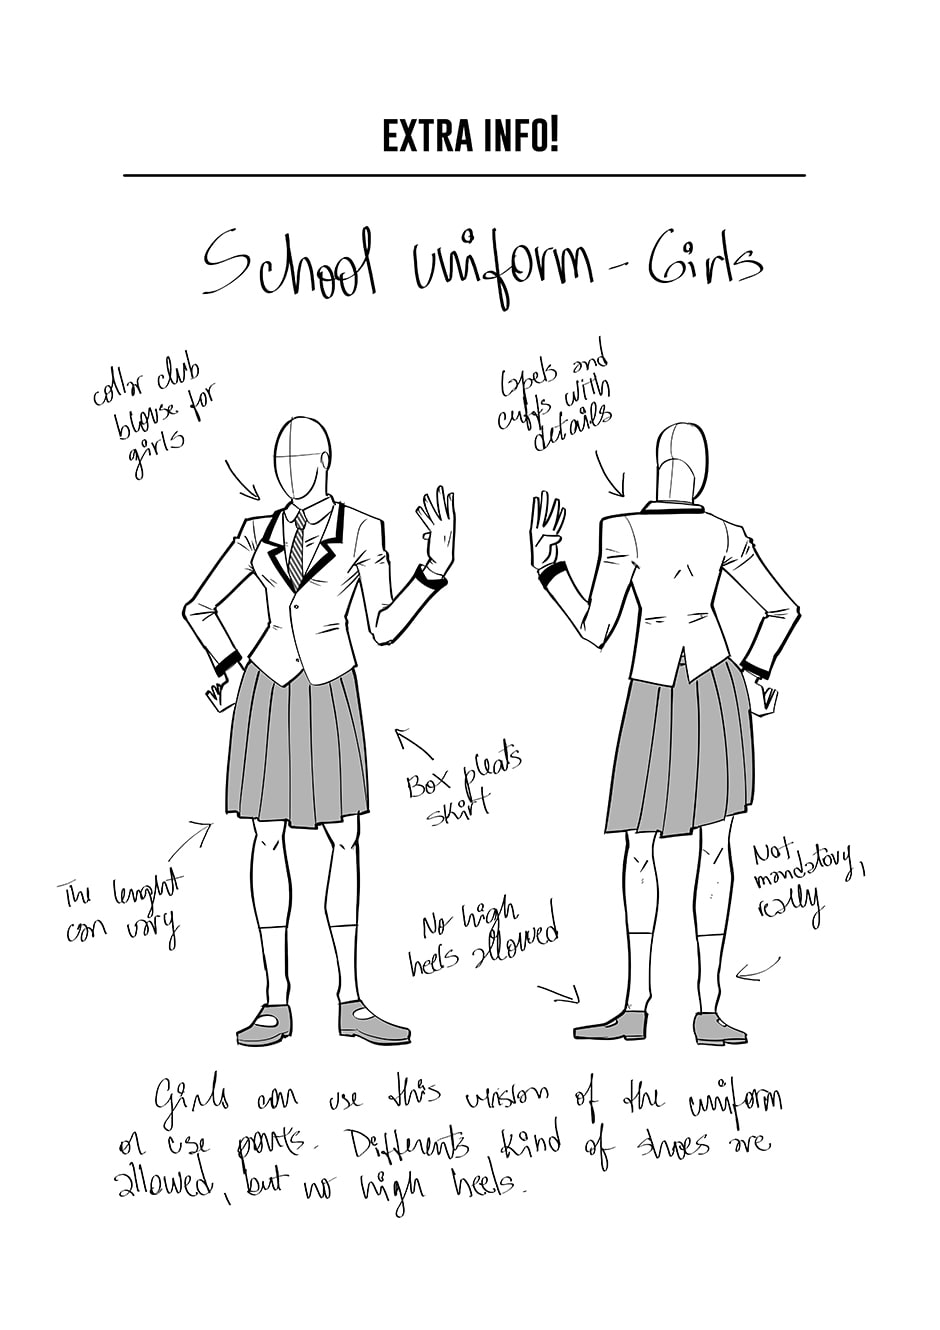 EXTRA INFO!
School uniform - Girls
collar club
blouse for
girls
lapels and
cuffs with
details
Box pleats
skirt
The lenght
can vary
No high
heels allowed
Not
mandatory,
really
Girls can use this version of the uniform
or use pants. Differents kind of shoes are
allowed, but no high heels.